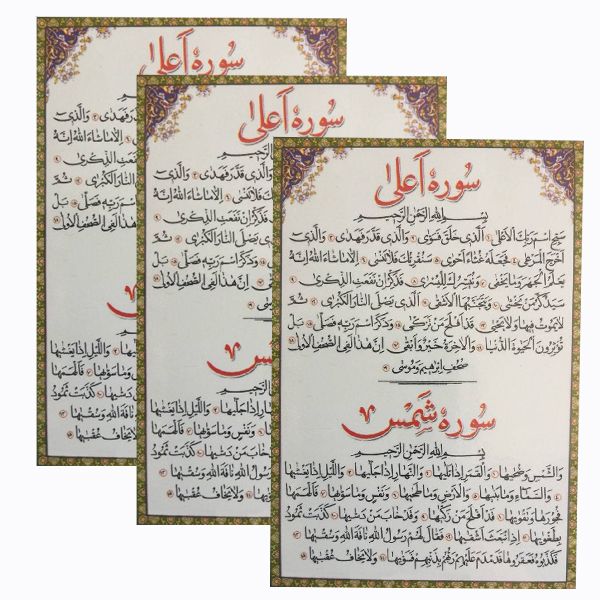 سورهٔ اَعلیٰ
بِسْمِ اللهِ الرَّحْمٰنِ الرَّحِیْمِ
سَبِّحِ اسْمَ رَبِّكَ الْاَعْلَی ۱ اَلَّذِی خَلَقَ فَسَوّٰی ۲ وَالَّذِی قَدَّرَ فَهَدٰی ۳ وَالَّذِی
اَخْرَجَ الْمَرْعٰی ۴ فَجَعَلَهُ غُثَاءً اَحْوٰی ۵ سَنُقْرِئُكَ فَلَا تَنْسٰی ۶ اِلَّا مَا شَاءَ اللهُ اِنَّهُ
یَعْلَمُ الْجَهْرَ وَمَا یَخْفٰی ۷ وَنُیَسِّرُكَ لِلْیُسْرٰی ۸ فَذَكِّرْ اِنْ نَفَعَتِ الذِّكْرٰی ۹
سَیَذَّكَّرُ مَنْ یَخْشٰی ۱۰ وَیَتَجَنَّبُهَا الْاَشْقَی ۱۱ اَلَّذِی یَصْلَی النَّارَ الْكُبْرٰی ۱۲ ثُمَّ
لَا یَمُوتُ فِیهَا وَلَا یَحْیٰی ۱۳ قَدْ اَفْلَحَ مَنْ تَزَكّٰی ۱۴ وَذَكَرَ اسْمَ رَبِّهِ فَصَلّٰی ۱۵ بَلْ
تُؤْثِرُونَ الْحَیٰوةَ الدُّنْیَا ۱۶ وَالْاٰخِرَةُ خَیْرٌ وَاَبْقٰی ۱۷ اِنَّ هٰذَا لَفِی الصُّحُفِ الْاُولٰی ۱۸
صُحُفِ اِبْرٰهِیمَ وَمُوسٰی ۱۹
سورهٔ شَمْس
بِسْمِ اللهِ الرَّحْمٰنِ الرَّحِیْمِ
وَالشَّمْسِ وَضُحٰیهَا ۱ وَالْقَمَرِ اِذَا تَلٰیهَا ۲ وَالنَّهَارِ اِذَا جَلّٰیهَا ۳ وَاللَّیْلِ اِذَا یَغْشٰیهَا
۴ وَالسَّمَاءِ وَمَا بَنٰیهَا ۵ وَالْاَرْضِ وَمَا طَحٰیهَا ۶ وَنَفْسٍ وَمَا سَوّٰیهَا ۷ فَاَلْهَمَهَا
فُجُورَهَا وَتَقْوٰیهَا ۸ قَدْ اَفْلَحَ مَنْ زَكّٰیهَا ۹ وَقَدْ خَابَ مَنْ دَسّٰیهَا ۱۰ كَذَّبَتْ ثَمُودُ
بِطَغْوٰیهَا ۱۱ اِذِ انْبَعَثَ اَشْقٰیهَا ۱۲ فَقَالَ لَهُمْ رَسُولُ اللهِ نَاقَةَ اللهِ وَسُقْیٰهَا ۱۳
فَكَذَّبُوهُ فَعَقَرُوهَا فَدَمْدَمَ عَلَیْهِمْ رَبُّهُمْ بِذَنْبِهِمْ فَسَوّٰیهَا ۱۴ وَلَا یَخَافُ عُقْبٰیهَا ۱۵